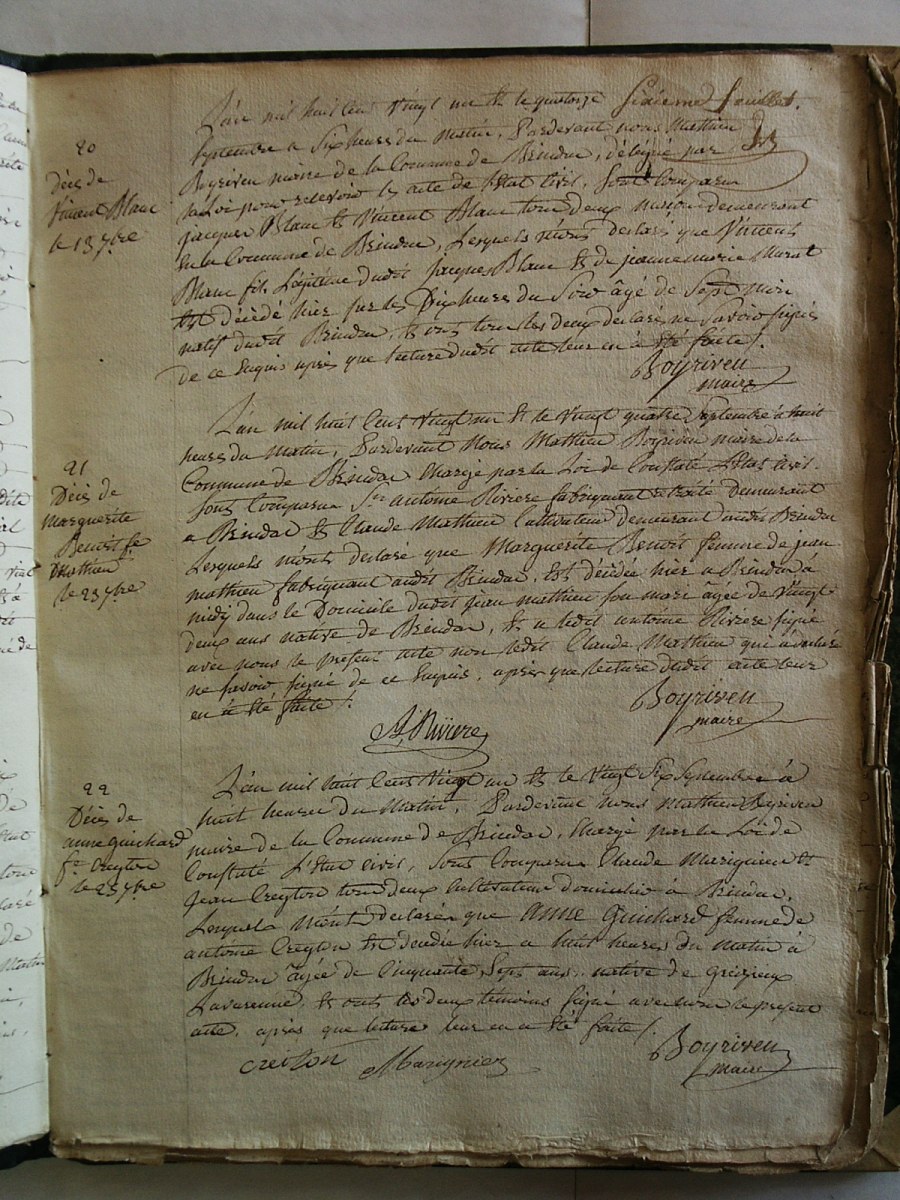 Sixieme feuillet.
20
Décès de
Vincent Blanc
le 13 7bre
L'an mil huit cent Vingt un & le quatorze
Septembre a Six heures du Matin, Pardevant nous Mathieu
Boyriven maire de la Commune de Brindas, délégué par
la Loi pour recevoir les acte de l'Etat Civil, sont Comparu
Jacques Blanc & Vincent Blanc tou deux demeurant
en la Commune de Brindas, Lesquels m'ont déclaré que Vincent
Blanc fils Légitime dudit Jacques Blanc & de jeanne marie
Est décédé hier sur les Dix heures du Soir âgé de Sept mois
natif dudit Brindas, & ont tou les deux déclaré ne Savoir signé
de ce Enquis après que lecture dudit acte leur en à été faite /.
Boyriven
maire
21
Décès de
Marguerite
Benoit fe
Mathieu
le 23 7bre
L'an mil huit Cent Vingt un & le Vingt quatre Septembre à huit
heures du Matin, Pardevant Nous Mathieu Boyriven maire de la
Commune de Brindas Chargé par la Loi de Constaté L'Etat Civil.
Sont Comparu Sr antoine Riviere fabriquant demeurant
a Brindas & Claude Mathieu Cultivateur demeurant audit Brindas
Lesquels m'ont déclaré que Marguerite Benoit femme de jean
mathieu fabriquant audit Brindas, Est décédée hier a Brindas à
midy dans le Domicile dudit jean mathieu son mari âgée de Vingt
deux ans native de Brindas, & a ledit antoine Riviere signé
avec nous le present acte non ledit Claude Mathieu qui a déclaré
ne savoir signé de ce Enquis, après que lecture dudit acte leur
en à été faite /.
Boyriven
maire
A. Riviere
22
Décès de
anne guichard
fe Creyton
le 25 7bre
L'an mil huit Cent Vingt un & le Vingt Six Septembre à
huit heures du Matin, Pardevant nous Mathieu Boyriven
maire de la Commune de Brindas, Chargé par la Loi de
Constaté L'Etat civil, sont Comparu Claude Marignier &
Jean Creyton tou deux Cultivateur domicilié à Brindas,
Lesquels M'ont déclaré que Anne Guichard femme de
antoine Creyton Est décédée hier a huit heures du Matin à
Brindas âgée de Cinquante Sept ans. native de grézieux
Lavarenne, & ont les deux témoins signé avec nous le present
acte, après que lecture leur en a été faite /.
Boyriven
maire
creiton Marignier